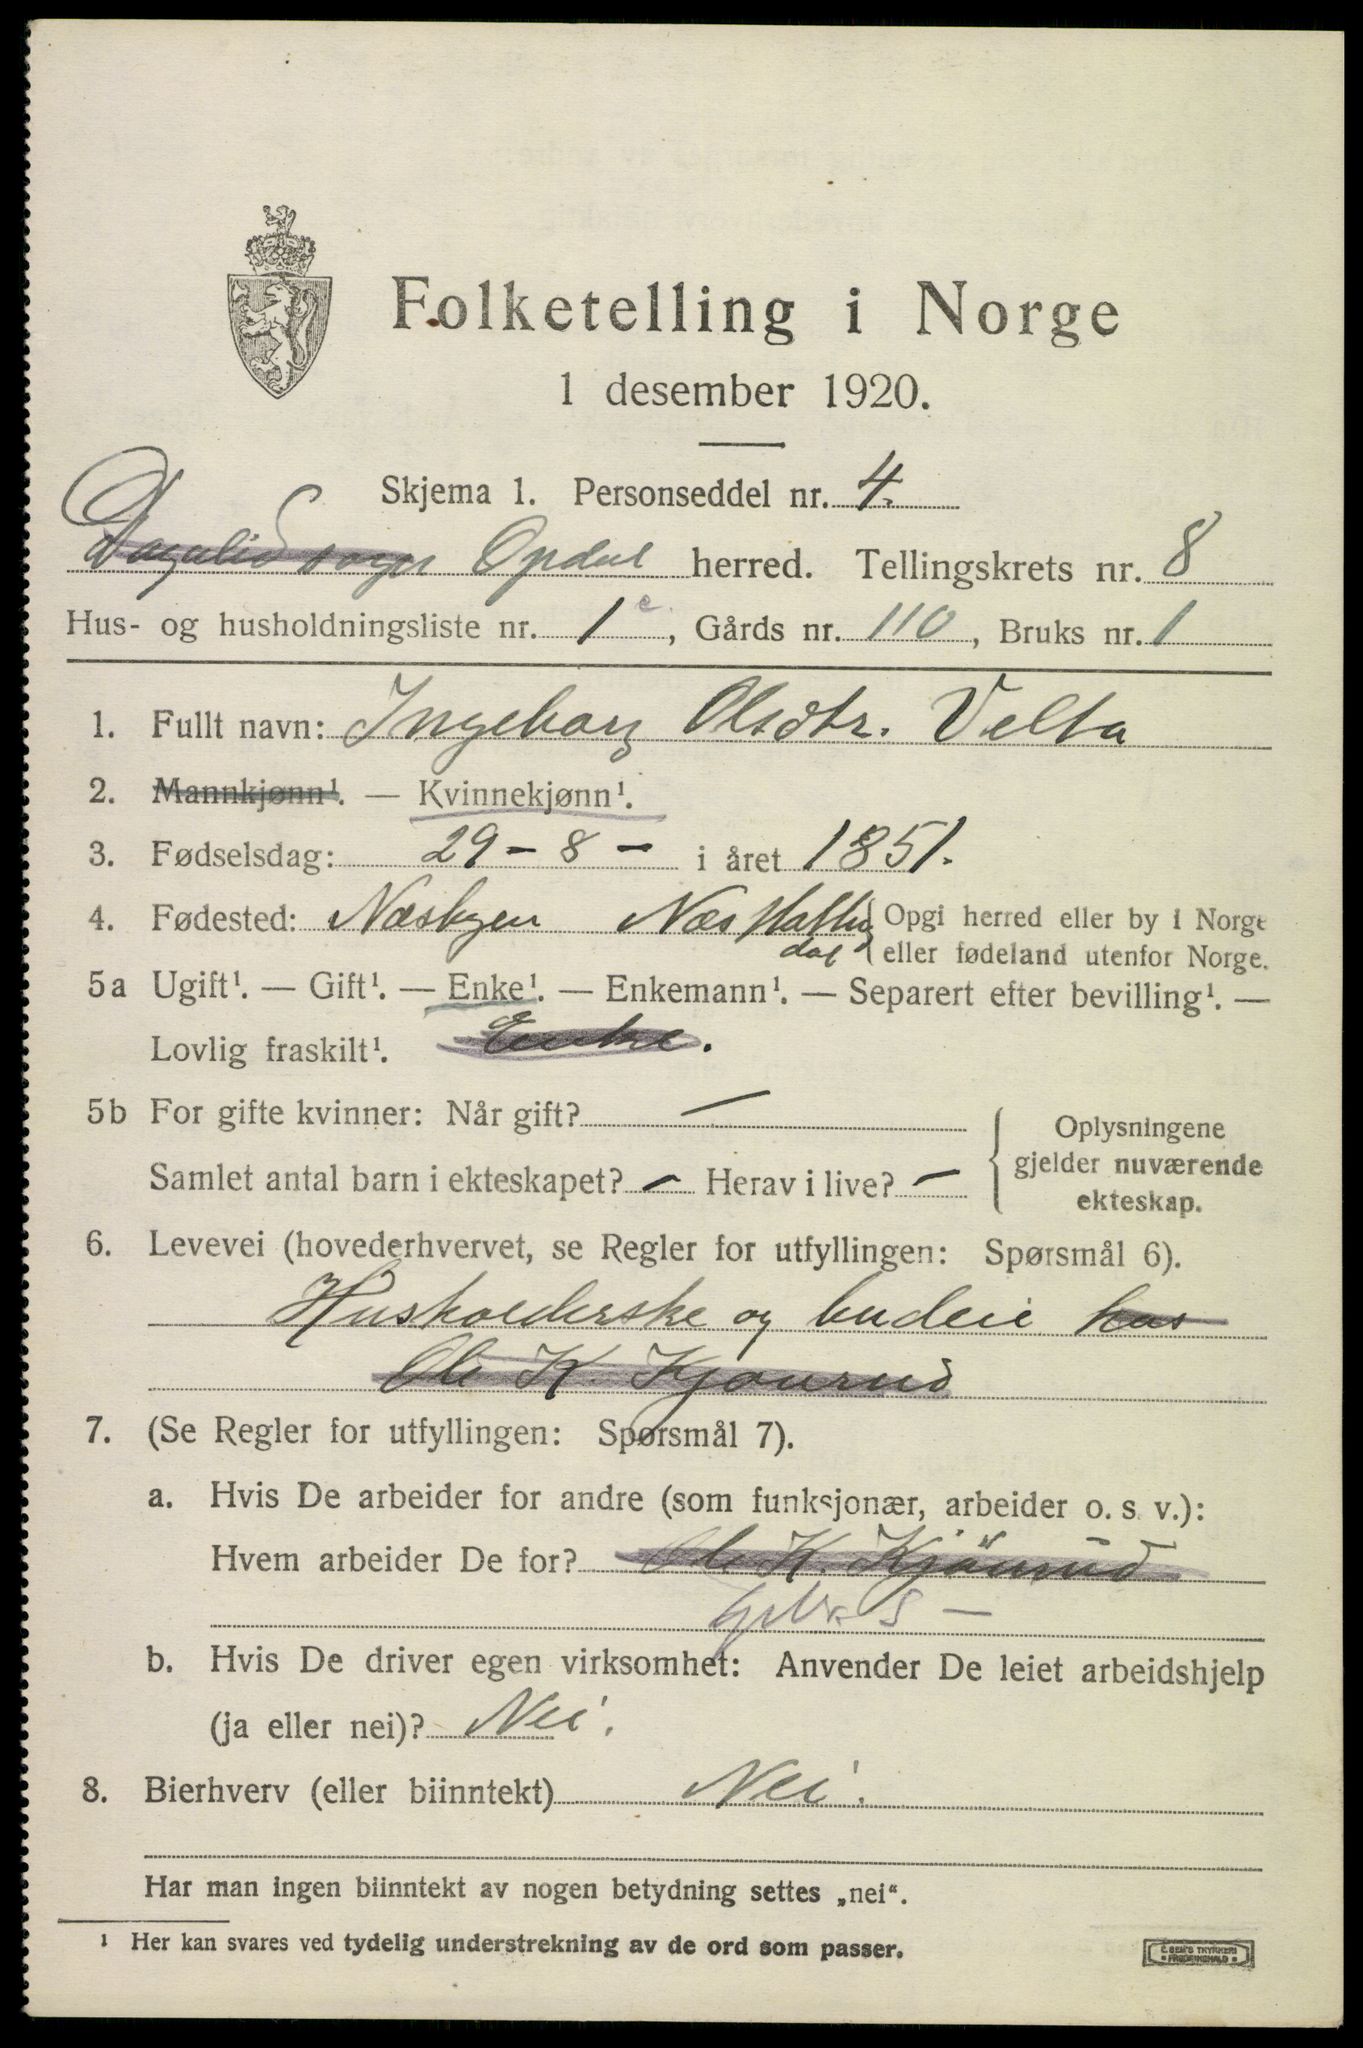 Folketelling i Norge
1 desember 1920.
Skjema 1. Personseddel nr. 4.
Opdal herred. Tellingskrets nr. 8
Hus- og husholdningsliste nr. 1 c, Gårds nr. 110, Bruks nr. 1
1. Fullt navn: Ingeborg Olsdtr. Velta
2. Mannkjønn¹. — Kvinnekjønn¹.
3. Fødselsdag: 29 – 8 – i året 1851.
4. Fødested: Næsbyen Næs Halling Opgi herred eller by i Norge
dal eller fødeland utenfor Norge.
5a Ugift¹. — Gift¹. — Enke¹. — Enkemann¹. — Separert efter bevilling¹. —
Lovlig fraskilt¹. Enke.
5b For gifte kvinner: Når gift? —
Samlet antal barn i ekteskapet? — Herav i live? —
Oplysningene
gjelder nuværende
ekteskap.
6. Levevei (hovederhvervet, se Regler for utfyllingen: Spørsmål 6).
Husholderske og budeie hos
Ole K. Kjønrud
7. (Se Regler for utfyllingen: Spørsmål 7).
a. Hvis De arbeider for andre (som funksjonær, arbeider o. s. v.):
Hvem arbeider De for? Ole K. Kjönrud
b. Hvis De driver egen virksomhet: Anvender De leiet arbeidshjelp
(ja eller nei)? Nei.
8. Bierhverv (eller biinntekt) Nei.
Har man ingen biinntekt av nogen betydning settes „nei“.
¹ Her kan svares ved tydelig understrekning av de ord som passer.